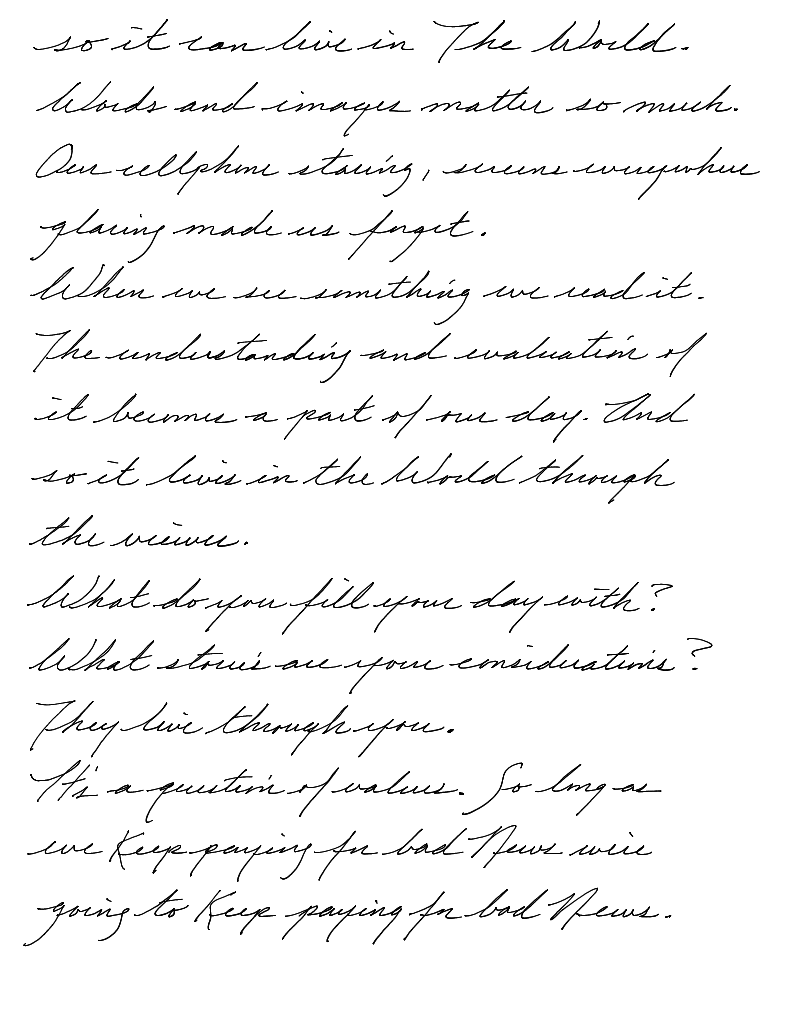 so it can live in The World.
Words and images matter so much.
Our cellphone staring, screens everywhere
glaring made us forget.
When we see something we read it.
The understanding and evaluation of
it becomes a part of our day. And
so it lives in the World through
the viewer.
What do you fill your day with?
What stories are your considerations?
They live through you.
It's a question of values. So long as
we Keep paying for bad News we're
going to Keep paying for bad News.